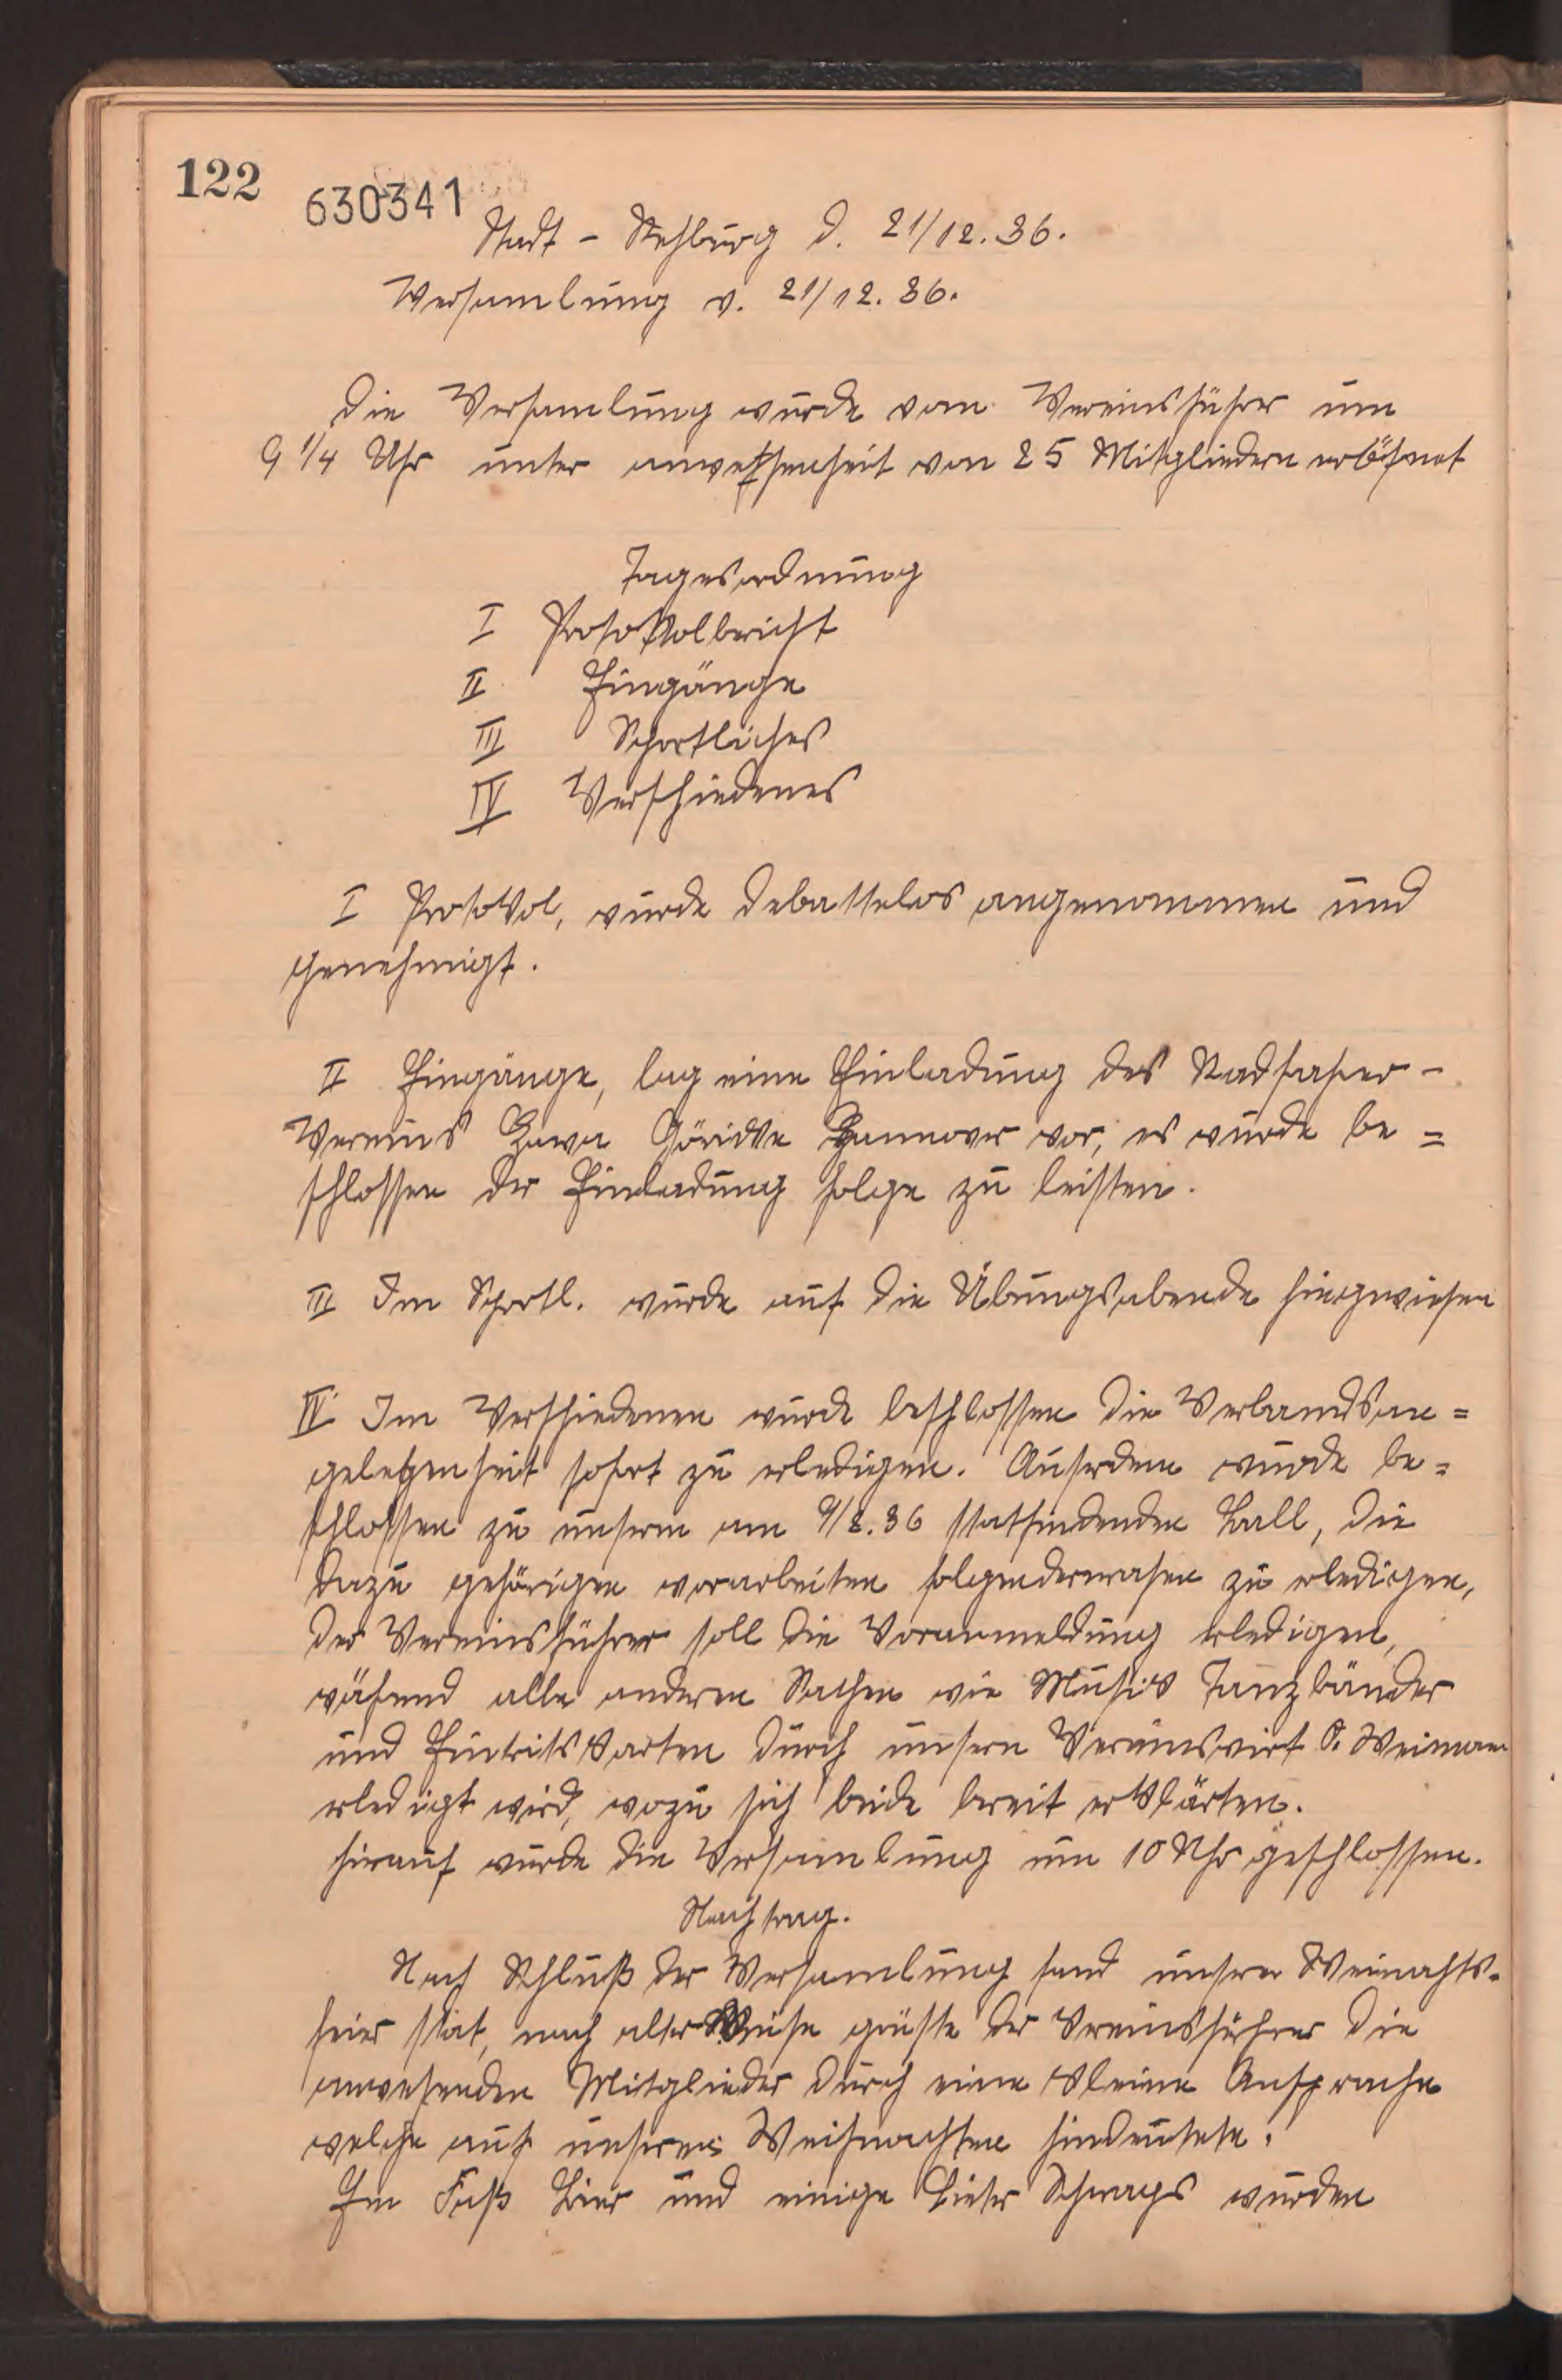 122
630341
Stadt - Rehburg d. 21/12. 36.
Versamlung v. 21/12. 36.
Die Versamlung wurde vom Vereinsführer um
9 1/4 Uhr unter anwessenheit von 25 Mitgliedern eröfnet
Tagesordnung
I Protokolbericht
II Eingänge
III Sportliches
IV Verschiedenes
I Protokol, wurde debattelos angenommen und
genehmigt.
II Eingänge, lag eine Einladung des Radfarer -
Vereins Hawa Göricke Hannover vor, es wurde be =
schlossen der Einladung folge zu leisten.
III Im Sportl. wurde auf die Übungsabende hingewiesen
IV Im Verschiedenen wurde beschlossen die Verbandsan =
gelegenheit sofort zu erledigen. Auserdem wurde be =
schlossen zu unserm am 9/2. 36 statfindenden Ball, die
dazu gehörigen vorarbeiten folgendermasen zu erledigen,
der Vereinsführer soll die Voranmeldung erledigen,
wähend alle anderen Sachen wie Musik Tanzbänder
und Eintritskarten durch unsern Vereinswirt O. Weimann
erledigt wird, wozu sich beide bereit erklärten.
hirauf wurde die Versamlung um 10 Uhr geschlossen.
Nachtrag.
Nach Schluß der Versamlung fand unsere Weinachts-
feier stat, nach alter Weise grüste der Vereinsführer die
anwesenden Mitglieder durch eine kleine Ansprache
welche auf unseren Weihnachten hindeutete.
Ein Faß Bier und einige Lieter Schnaps wurden